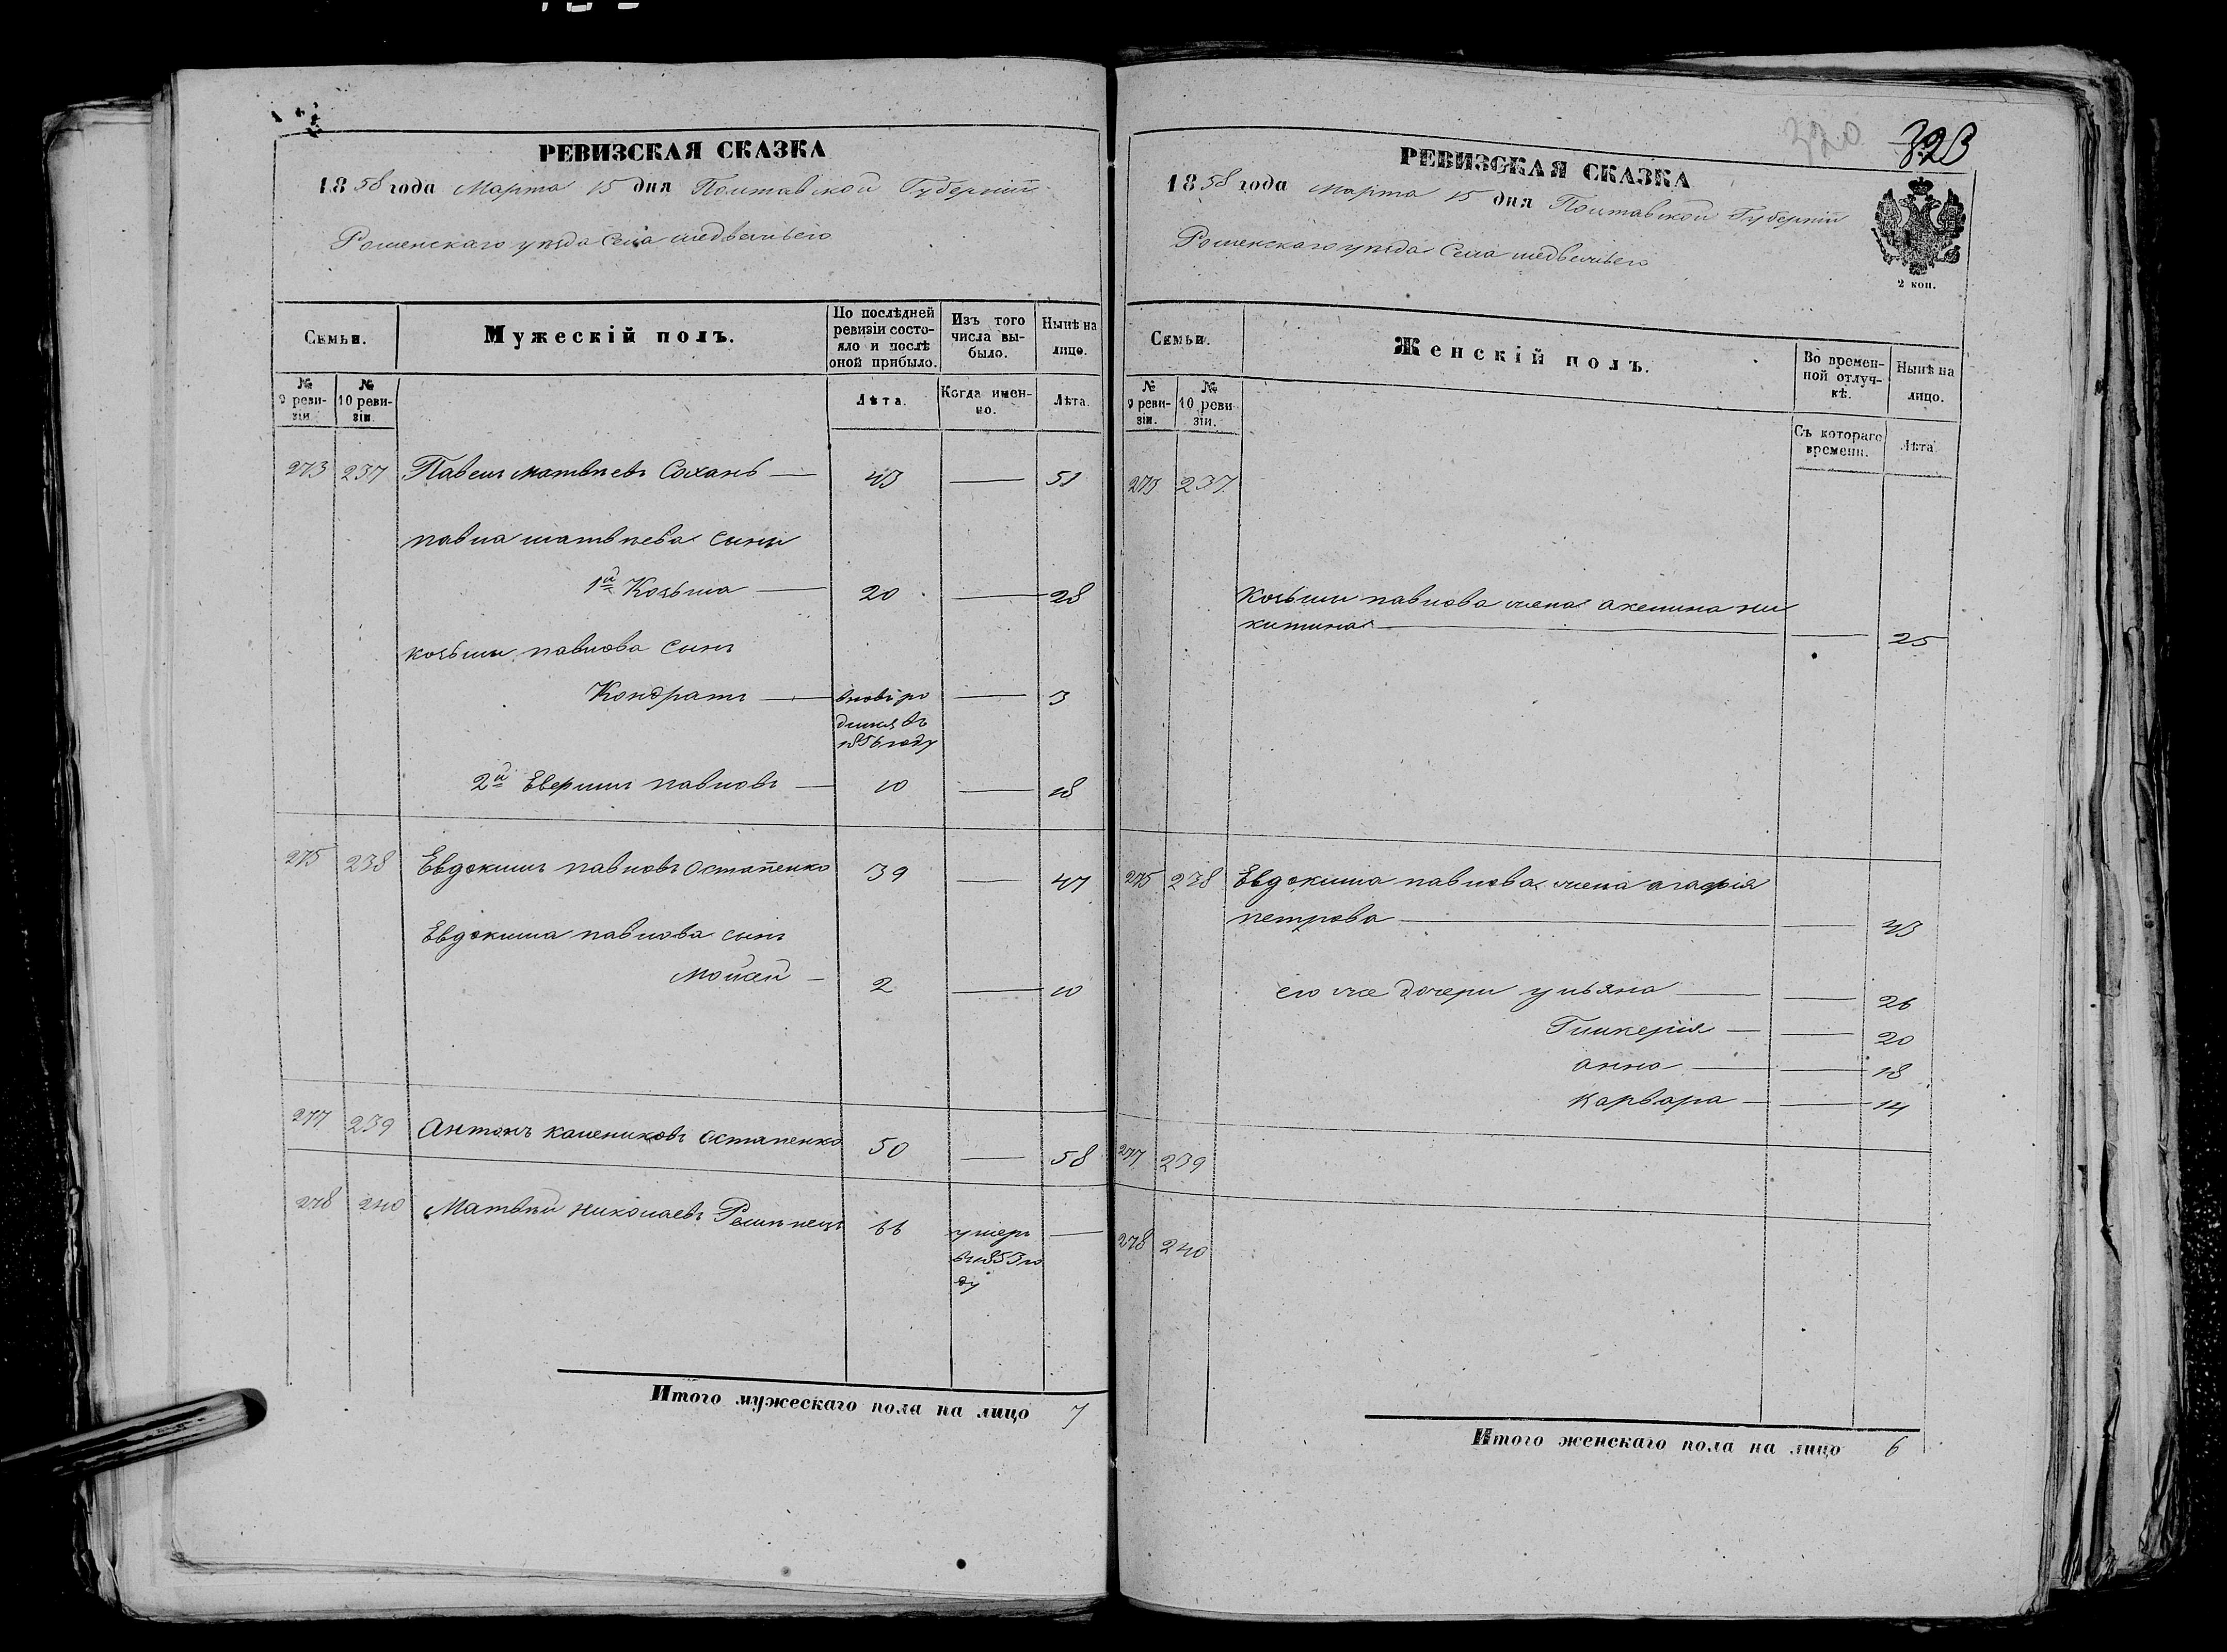 РЕВИЗСКАЯ СКАЗКА
1858 года Марта 15 дня Полтавской Губернiи
Роменскаго уѣзда Села медвежьего
Семьи.
Мужескій полъ.
По послѣдней ревизіи состояло и послѣ оной прибыло.
Изъ того числа выбыло.
Нынѣ на лицо.
№ 9 ревизіи
№ 10 ревизіи.
Лѣта.
Когда именно.
Лѣта.
273 237 Павелъ матвѣевъ Сохань — 43 — 51
павла матвѣева сыны
1й Козьма — 20 — 28
козьмы павлова сынъ
Кондратъ — вновь ро — 3
дился въ
1856 году
2й павловъ — 10 — 18
275 238 Евдокимъ павловъ Остапенко 39 — 47
Евдокима павлова сынъ
Мойсей — 2 — 10
277 239 Антонъ калениковъ остапенко 50 — 58
278 240 Матвѣй николаевъ 66 умеръ —
въ 1853 го
ду
Итого мужескаго пола на лицо 7
320 323
РЕВИЗСКАЯ СКАЗКА
1858 года марта 15 дня Полтавской Губернiи
Роменскаго уѣзда Села медвежьего
2 коп.
Семьи.
Женскій полъ.
Во временной отлучкѣ.
Нынѣ на лицо.
№ 9 ревизіи.
№ 10 ревизіи.
Съ котораго времени.
Лѣта.
273 237
Козьмы павлова жена акелина ни
китина — — 25
275 238 Евдокима павлова жена агафія
петрова — — 43
его же дочери ульяна — — 26
Гликерія — — 20
анна — — 18
варвара — — 14
277 239
278 240
Итого женскаго пола на лицо 6